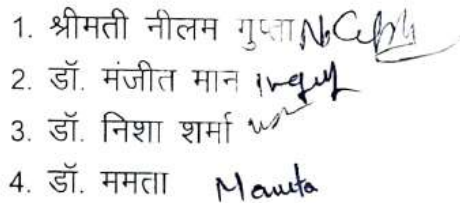 1. श्रीमती नीलम गुप्ता
2. डॉ. मंजीत मान
3. डॉ. निशा शर्मा
4. डॉ. ममता Mamta